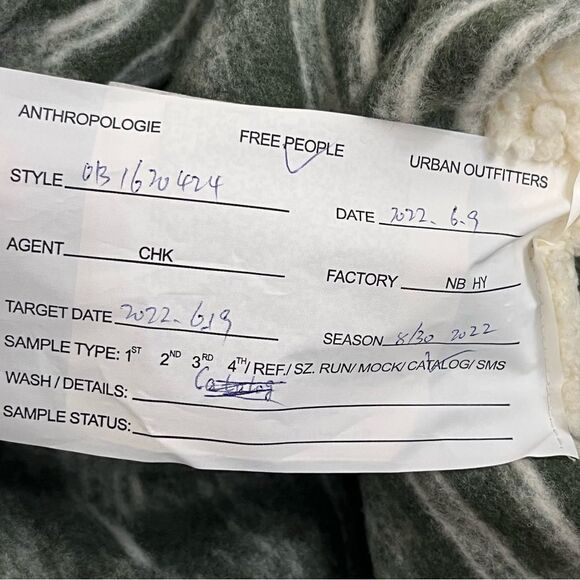 ANTHROPOLOGIE FREE PEOPLE URBAN OUTFITTERS
STYLE OB1620424 DATE 2022. 6.9
AGENT CHK FACTORY NB HY
TARGET DATE 2022. 6.19 SEASON 8/30 2022
SAMPLE TYPE: 1ST 2ND 3RD 4TH/ REF./ SZ. RUN/ MOCK/ CATALOG/ SMS
WASH / DETAILS: Catalog
SAMPLE STATUS: